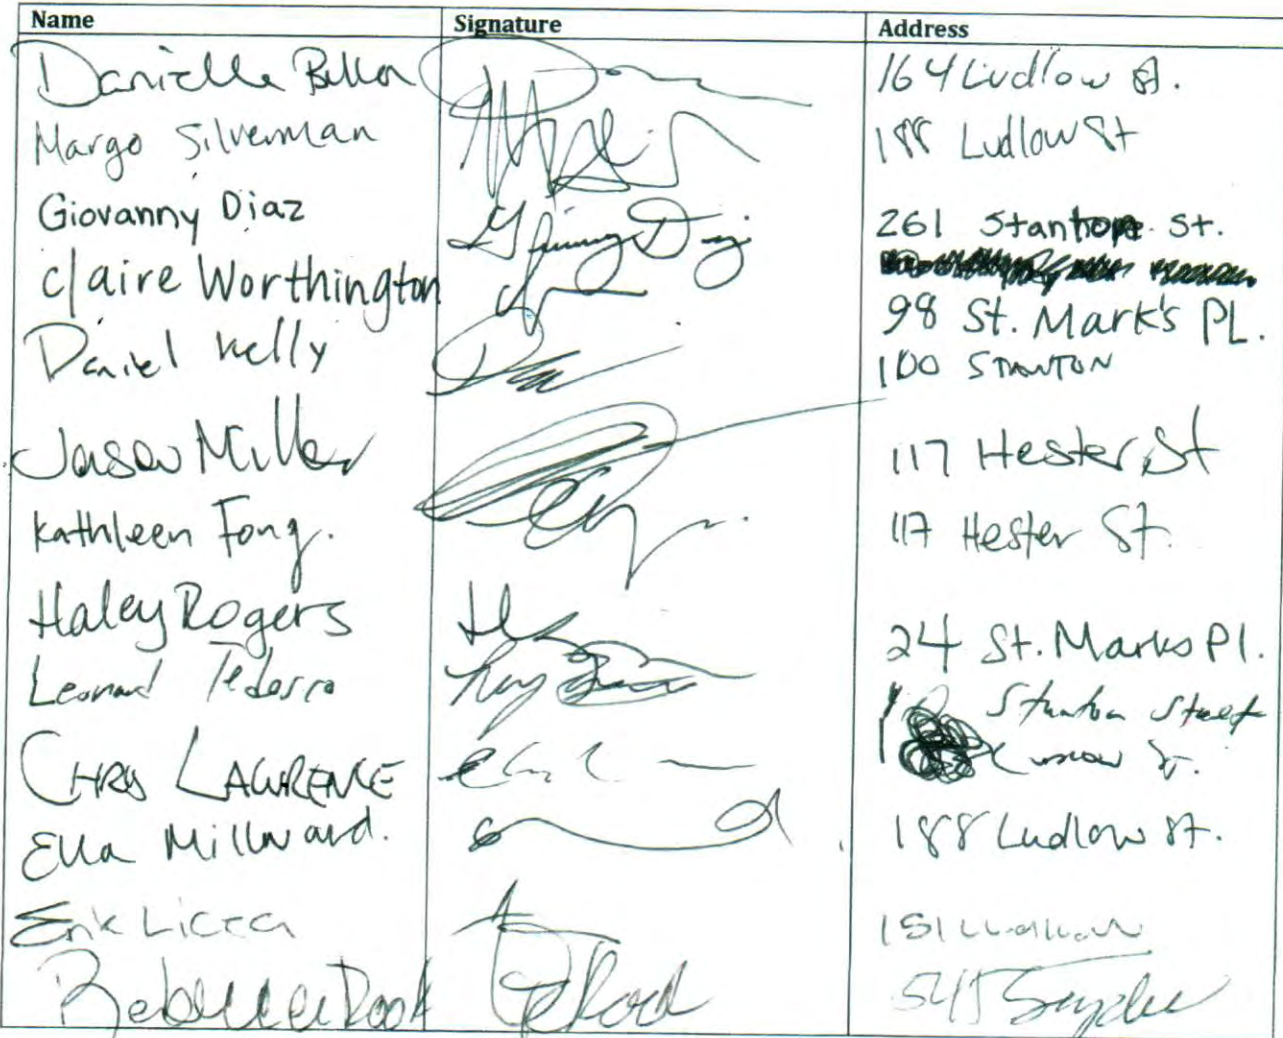 Name Signature Address
Danielle 164 Ludlow St.
Margo Silverman 188 Ludlow St
Giovanny Diaz 261 Stanton St.
Claire Worthington 98 St. Mark's PL.
Daniel Kelly 100 STANTON
Jason Miller 117 Hester St
Kathleen Fong. 117 Hester St.
Haley Rogers 24 St. Marks Pl.
Leonard Tedesco Stanton Street
CHRIS LAWRENCE
Ella Millward. 188 Ludlow St.
Erik Licca 151 Ludlow
Rebecca Rook